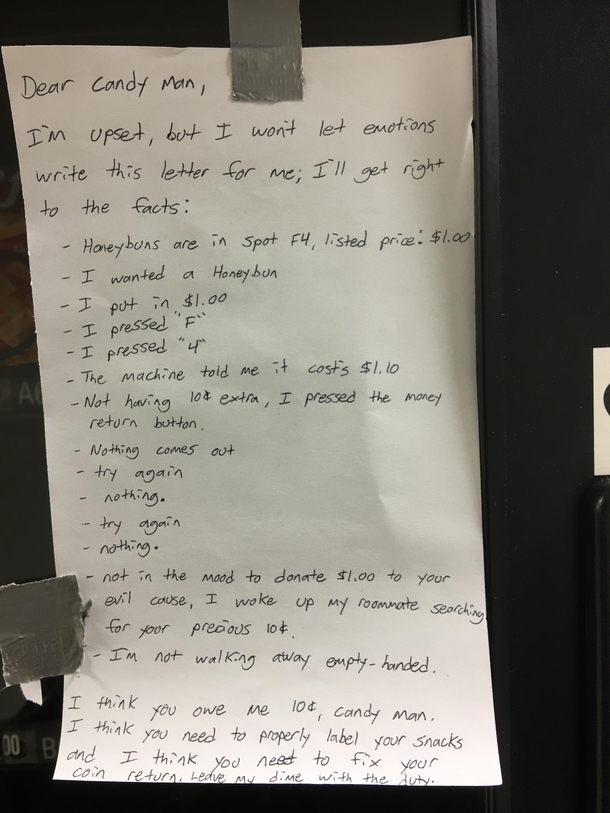 Dear Candy Man,
I'm upset, but I won't let emotions
write this letter for me; I'll get right
to the facts:
- Honeybuns are in spot F4, listed price: $1.00
- I wanted a Honeybun
- I put in $1.00
- I pressed "F"
- I pressed "4"
- The machine told me it costs $1.10
- Not having 10¢ extra, I pressed the money
return button.
- Nothing comes out
- try again
- nothing.
- try again
- nothing.
- not in the mood to donate $1.00 to your
evil cause, I woke up my roommate searching
for your precious 10¢.
- I'm not walking away empty-handed.
I think you owe me 10¢, Candy Man.
I think you need to properly label your snacks
and I think you need to fix your
coin return. Leave my dime with the duty.
00 B